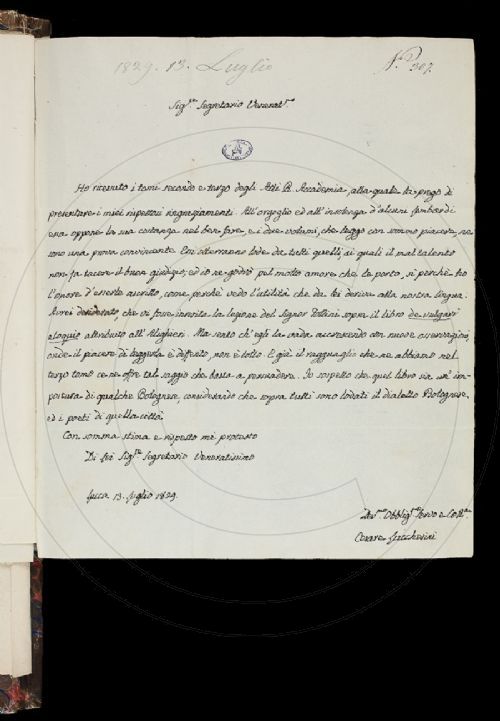 1829. 13. Luglio
N.º 307.
Sig.re Segretario Venerat.mo
Ho ricevuto i tomi secondo e terzo degli Atti R. Accademia, alla quale la prego di
presentare i miei rispettosi ringraziamenti. All'orgoglio ed all'insolenza d'alcuni Lombardi
essa oppone la sua costanza nel ben fare, e i due volumi, che leggo con sommo piacere, ne
sono una prova convincente. Em otterranno lode da tutti quelli ai quali il mal talento
non fa tacere il buon giudizio; ed io ne godrò pel molto amore che le porto, sì perchè ho
l'onore d'esserle ascritto, come perchè vedo l'utilità che da lei deriva alla nostra lingua.
Avrei desiderato, che vi fosse inserita la lezione del Signor sopra il libro de vulgari
eloquio attribuito all'Alighieri. Ma sento ch'egli la vada accrescendo con nuove osservazioni,
onde il piacere di leggerla è differito, non è tolto. E già il ragguaglio che ne abbiamo nel
terzo tomo ce ne offre tal saggio che basta a persuadere. Io sospetto che quel libro sia un'im-
postura di qualche Bolognese, considerando che sopra tutti sono lodati il dialetto Bolognese,
ed i poeti di quella città.
Con somma stima e rispetto mi protesto
Di Lei Sig.re Segretario Veneratissimo
Lucca 13. Luglio 1829.
Dev.mo Obblig.mo Servo e Coll.a
Cesare Lucchesini